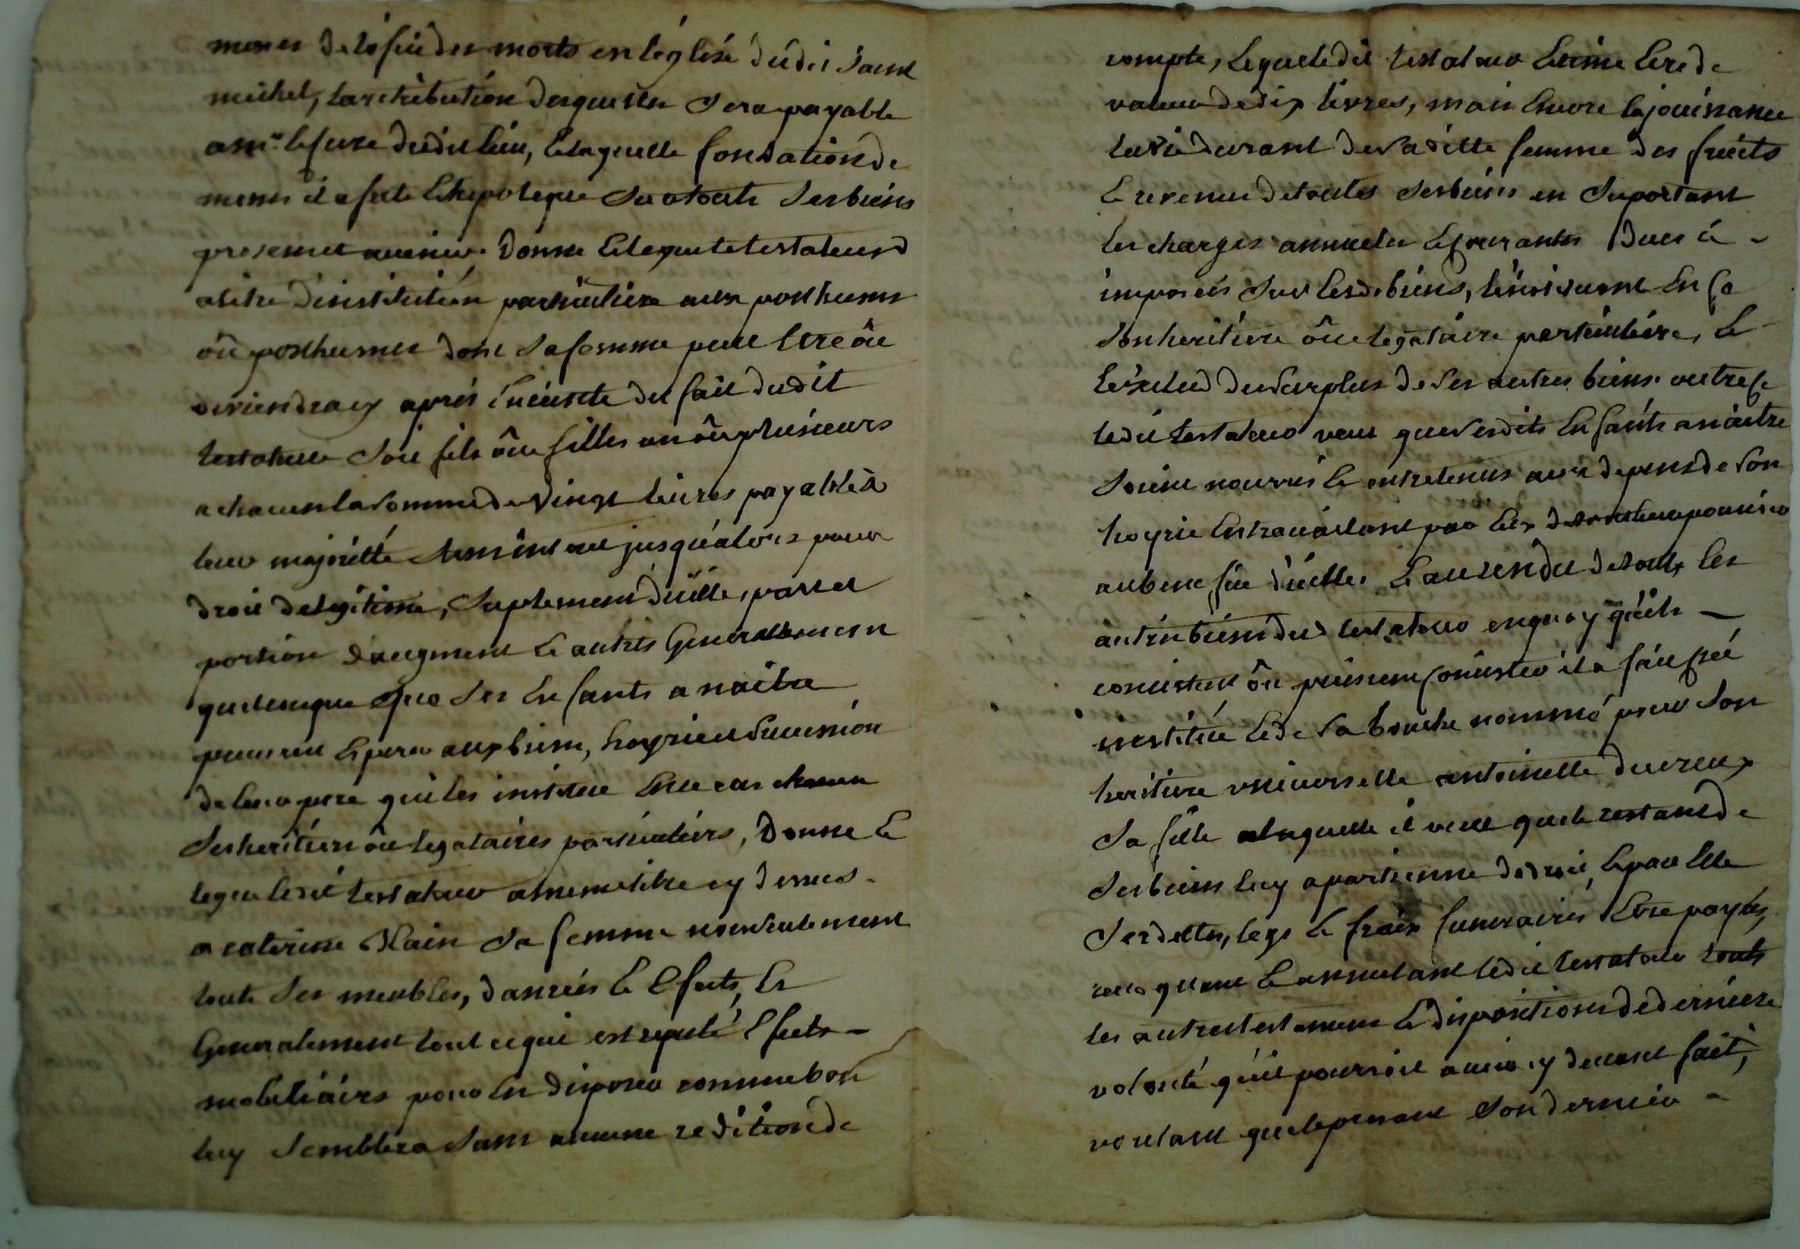 messes de lofice des morts en léglise dudit saint
michel, la retribution desquelles sera payable
a mr. le cure dudit lieu, et laquelle fondation de
messes il a faite et hipoteque sur touts ses biens
presens et avenir. donne et legue le testateur
a titre d'institution particuliere aux posthumes
ôu posthumes dont sa femme peut être ôu
deviendra cy aprés enceinte du fait dudit
testateur soit fils ôu filles un ôu plusieurs
a chacun la somme de vingt livres payable à
leur majorité et jusqu'alors pour
droit de legitime, suplement d'icelle, part et
portion d'augment et autres generallement
quelconque que ses enfants a naitre
pourront esperer aux biens, hoyrie et succession
de leur pere qui les institue en ce cas
ses heritiers ôu legataires particuliers, donne et
legue ledit testateur a meme titre cy dessus
a caterine sa femme non seulement
touts ses meubles, danrées et efaits, et
generalement tout ce qui est reputé efaits
mobiliairs pour en disposer comme bon
luy semblera sans aucune redition de
compte, lequel dit testateur estime etre de
valeur de dix livres, mais encore la jouissance
sa vie durant de sa ditte femme des fruits
et revenus de toutes ses biens en suportant
les charges annuelles et courantes dues et
imposées sur lesd. biens, l'instituant en ce
son heritiere ôu legataire particuliere, et
l'exclud du surplus de ses autres biens. outre ce
ledit testateur veut que sesdits enfants a naitre
soient nourris et entretenus aux depens de son
hoyrie en travaillant par eux de tout leur pouvoir
au benefice d'icelle. et au residu de touts les
autres biens dud. testateur en quoy qu'ils
consistent ôu puissent consister il a fait, créé
institué et de sa bouche nommé pour son
heritiere universelle antoinette
sa fille a laquelle il veut que le restant de
ses biens luy apartienne de droit, et par elle
ses dettes, legs et fraix funeraires etre payés,
revoquant et annulant ledit testateur touts
les autres testaments et dispositions de derniere
volonté qu'il pourroit avoir cy devant fait,
voulant que le present son dernier